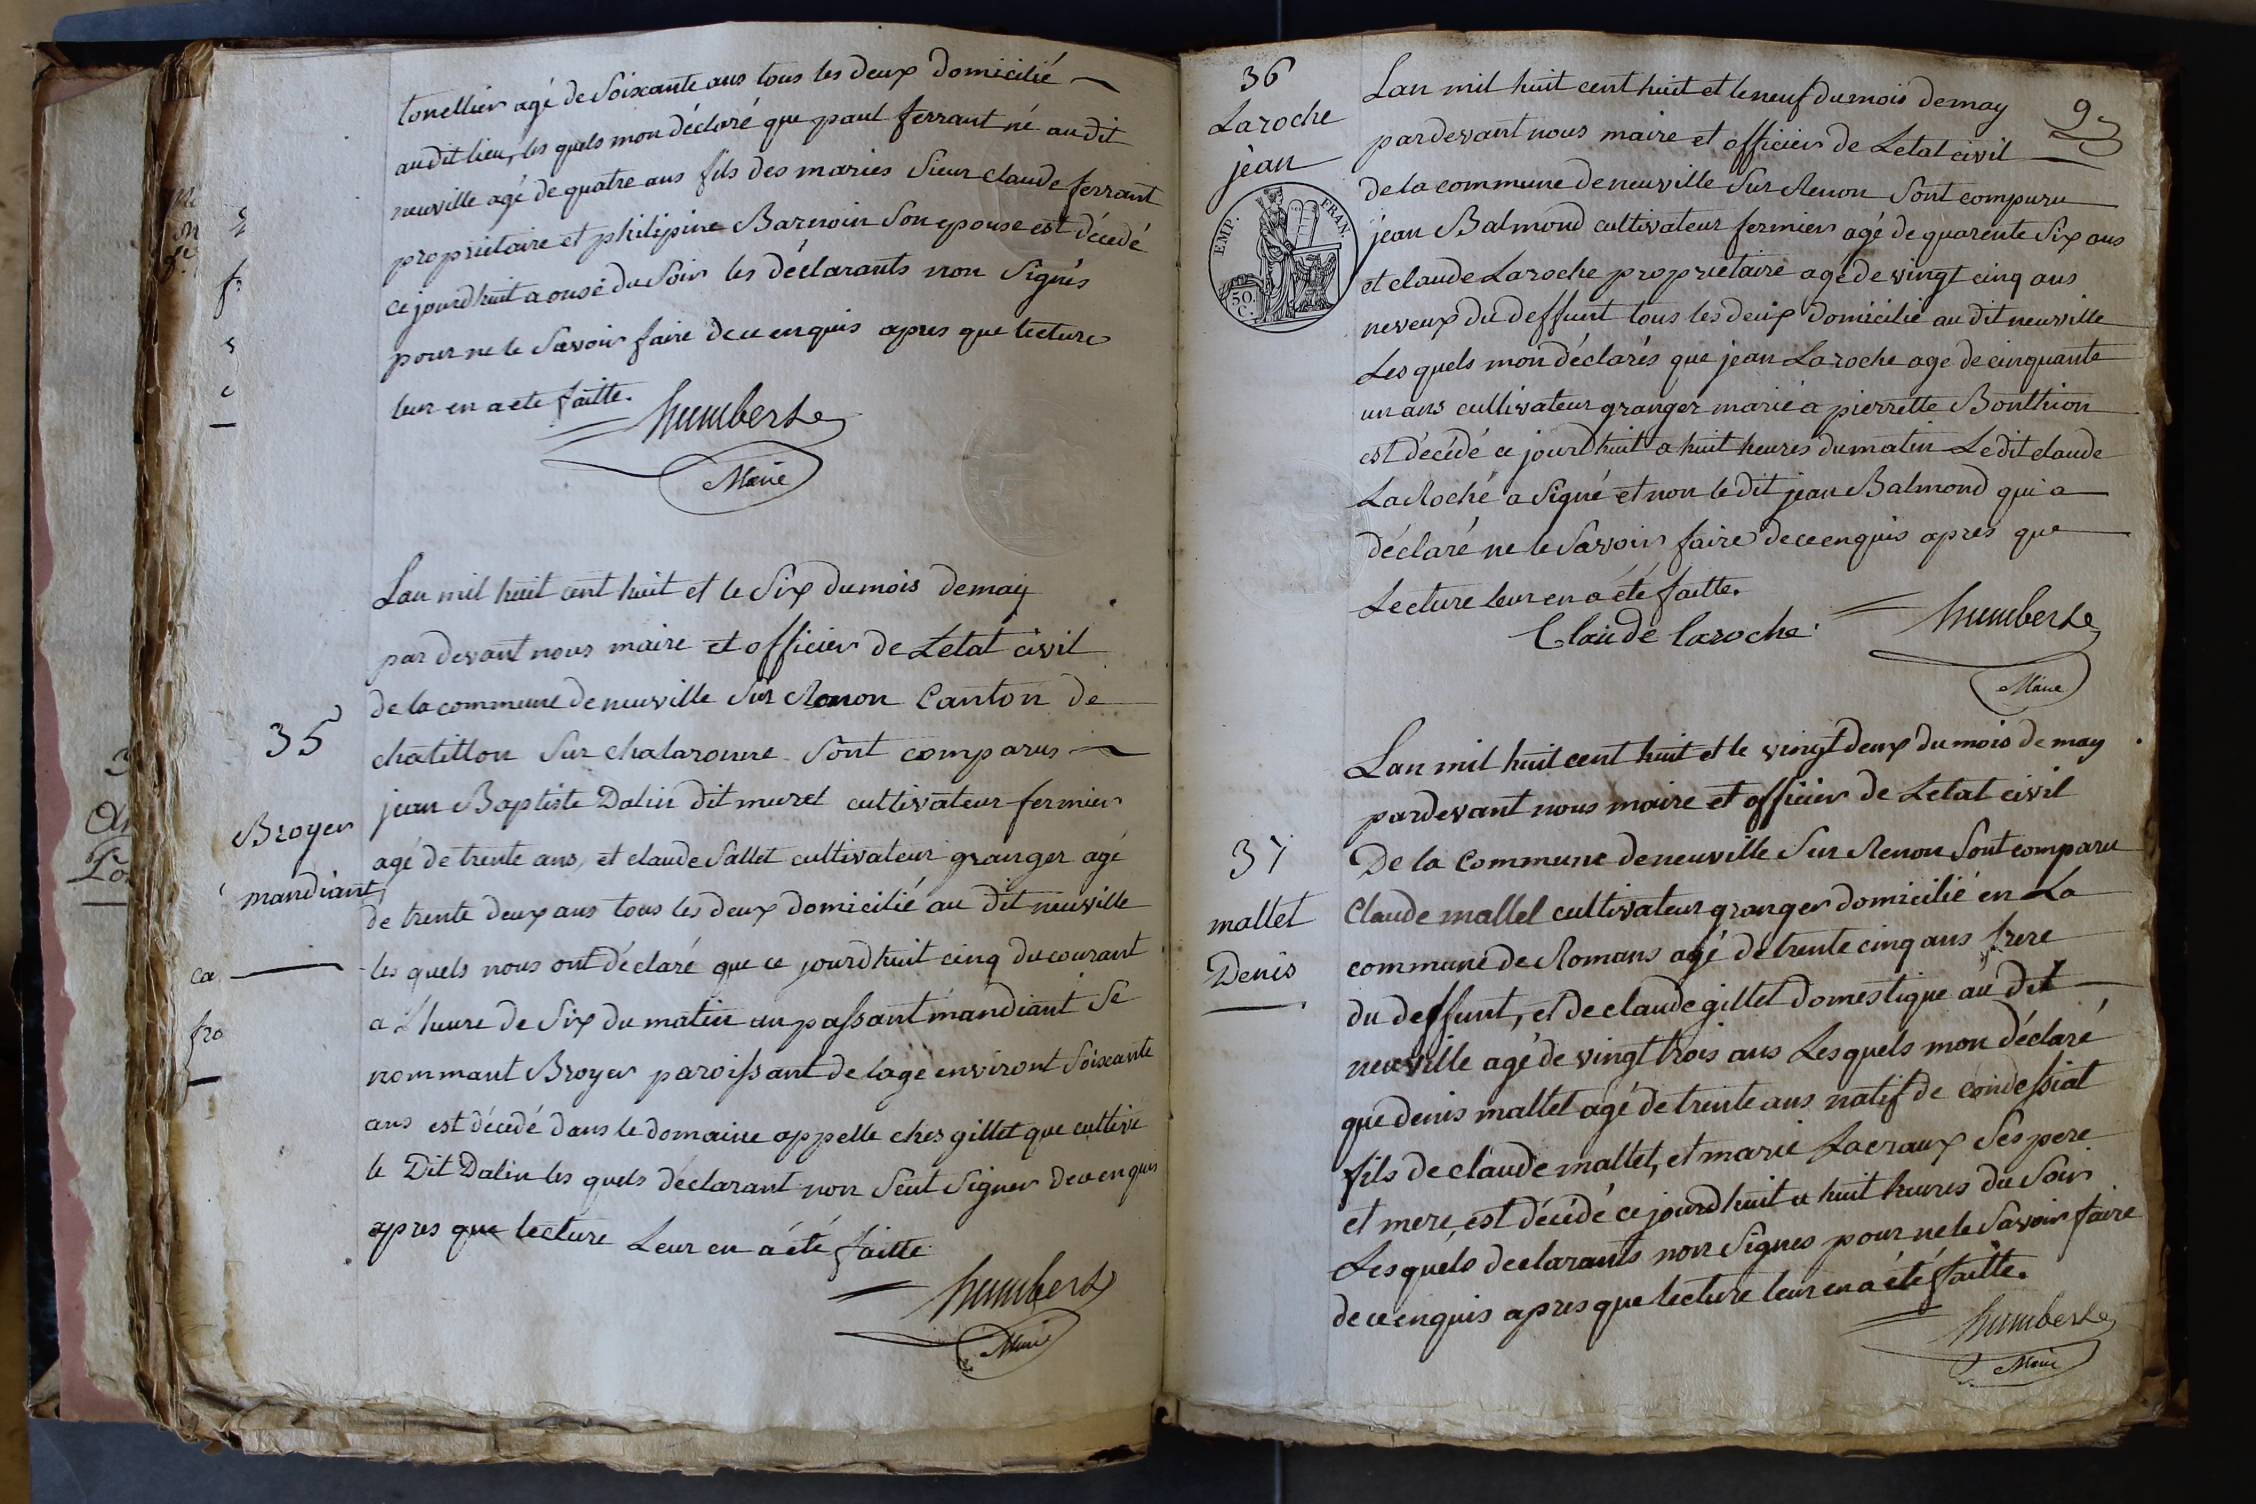 tonellier agé de Soixante ans tous les deux domicilié
audit lieu, les quels mon déclaré que paul ferrant né audit
neuville agé de quatre ans fils des mariés Sieur claude ferrant
propriétaire et philipine Barnoin Son epouse est décedé
ce jourdhuit a onse du Soir les déclarants non Signés
pour ne le Savoir faire de ce enquis apres que lecture
leur en a ete faitte.
humbert
Maire
Lan mil huit cent huit et le Six du mois de may
par devant nous maire et officier de Letat civil
de la commune de neuville Sur Renon Canton de
35
chatillon Sur chalaronne Sont comparus
jean Baptiste Dalin dit muret cultivateur fermier
Broyer
agé de trente ans, et claude Sallet cultivateur granger agé
mandiant
de trente deux ans tous les deux domicilié au dit neuville
les quels nous ont déclaré que ce jourdhuit cinq du courant
a Lheure de Six du matin un passant mandiant Se
nommant Broyer paroissant de lage environt Soixante
ans est décédé dans le domaine appelle ches gillet que cultive
le Dit Dalin les quels déclarant non Seut Signer de ce enquis
apres que lecture Leur en a été faitte
humbert
Maire
36
Laroche
jean
EMP. FRAN.
50.
C.
9
Lan mil huit cent huit et le neuf du mois de may
pardevant nous maire et officier de Letat civil
de la commune de neuville Sur Renon Sont comparu
jean Balmond cultivateur fermier agé de quarente Six ans
et claude Laroche proprietaire agé de vingt cinq ans
neveux du deffunt tous les deux domicilié au dit neuville
Les quels mon déclarés que jean Laroche age de cinquante
un ans cultivateur granger marié a pierrette Bonthion
est décédé ce jourdhuit a huit heures du matin Ledit claude
LaRoche a Signé et non le dit jean Balmond qui a
déclaré ne le Savoir faire de ce enquis apres que
Lecture leur en a été faitte.
Claude laroche
humbert
Maire
Lan mil huit cent huit et le vingt deux du mois de may
pardevant nous maire et officier de Letat civil
37
De la Commune de neuville Sur Renon Sont comparu
mallet
Claude mallet cultivateur granger domicilié en La
Denis
commune de Romans agé de trente cinq ans frere
du deffunt, et de claude gillet domestique au dit
neuville agé de vingt trois ans Lesquels mon déclaré
que denis mallet agé de trente ans natif de condessiat
fils de claude mallet, et marie Lacraux Ses pere
et mere, est décédé ce jourdhuit a huit heures du Soir
Lesquels declarants non Signes pour ne le Savoir faire
de ce enquis apres que lecture leur en a été faitte.
humbert
Maire